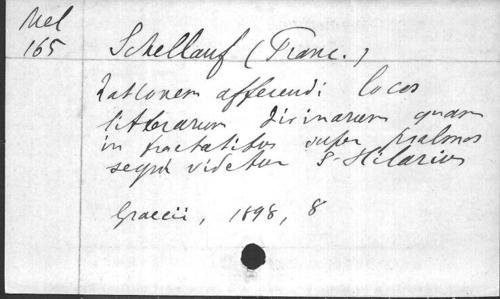 Mel
165
Schellauf (Franc.)
Rationem afferendi locos
litterarum divinarum quam
in tractatibus super psalmos
sequi videtur S. Hilarius
Graecii, 1898, 8